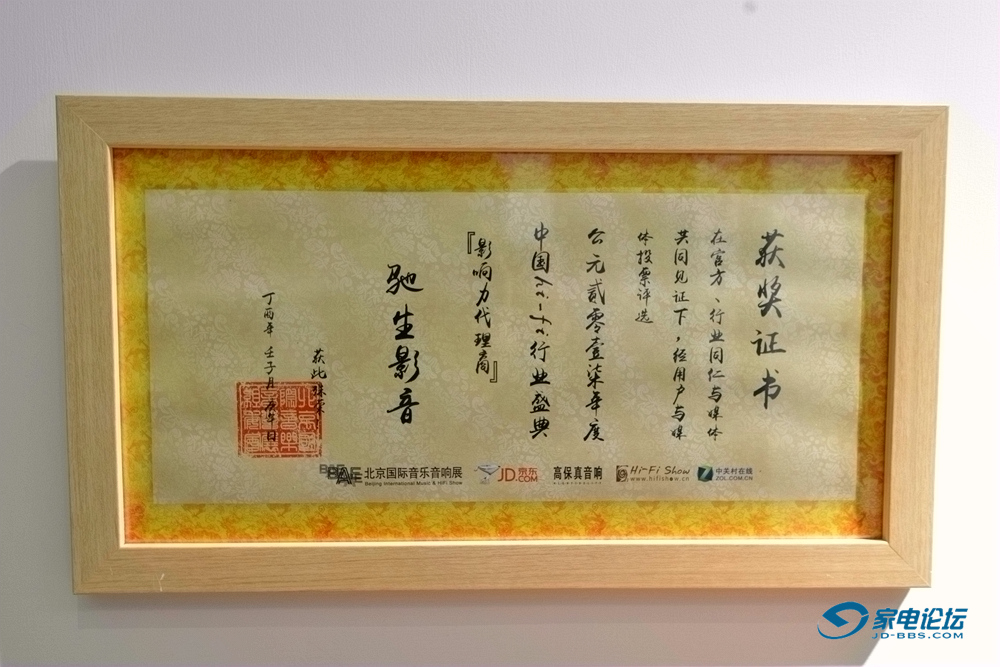 获奖证书
在官方、行业同仁与媒体
共同见证下，经用户与媒
体投票评选
公元贰零壹柒年度
中国hi-fi行业盛典
『影响力代理商』
驰生影音
获此殊荣
丁酉年 壬子月 庚午日
北京国际音乐音响展
Beijing International Music & HiFi Show
JD京东
.COM
高保真音响
Hi-Fi Show
www.hifishow.cn
中关村在线
ZOL.COM.CN
家电论坛
JD-BBS.COM